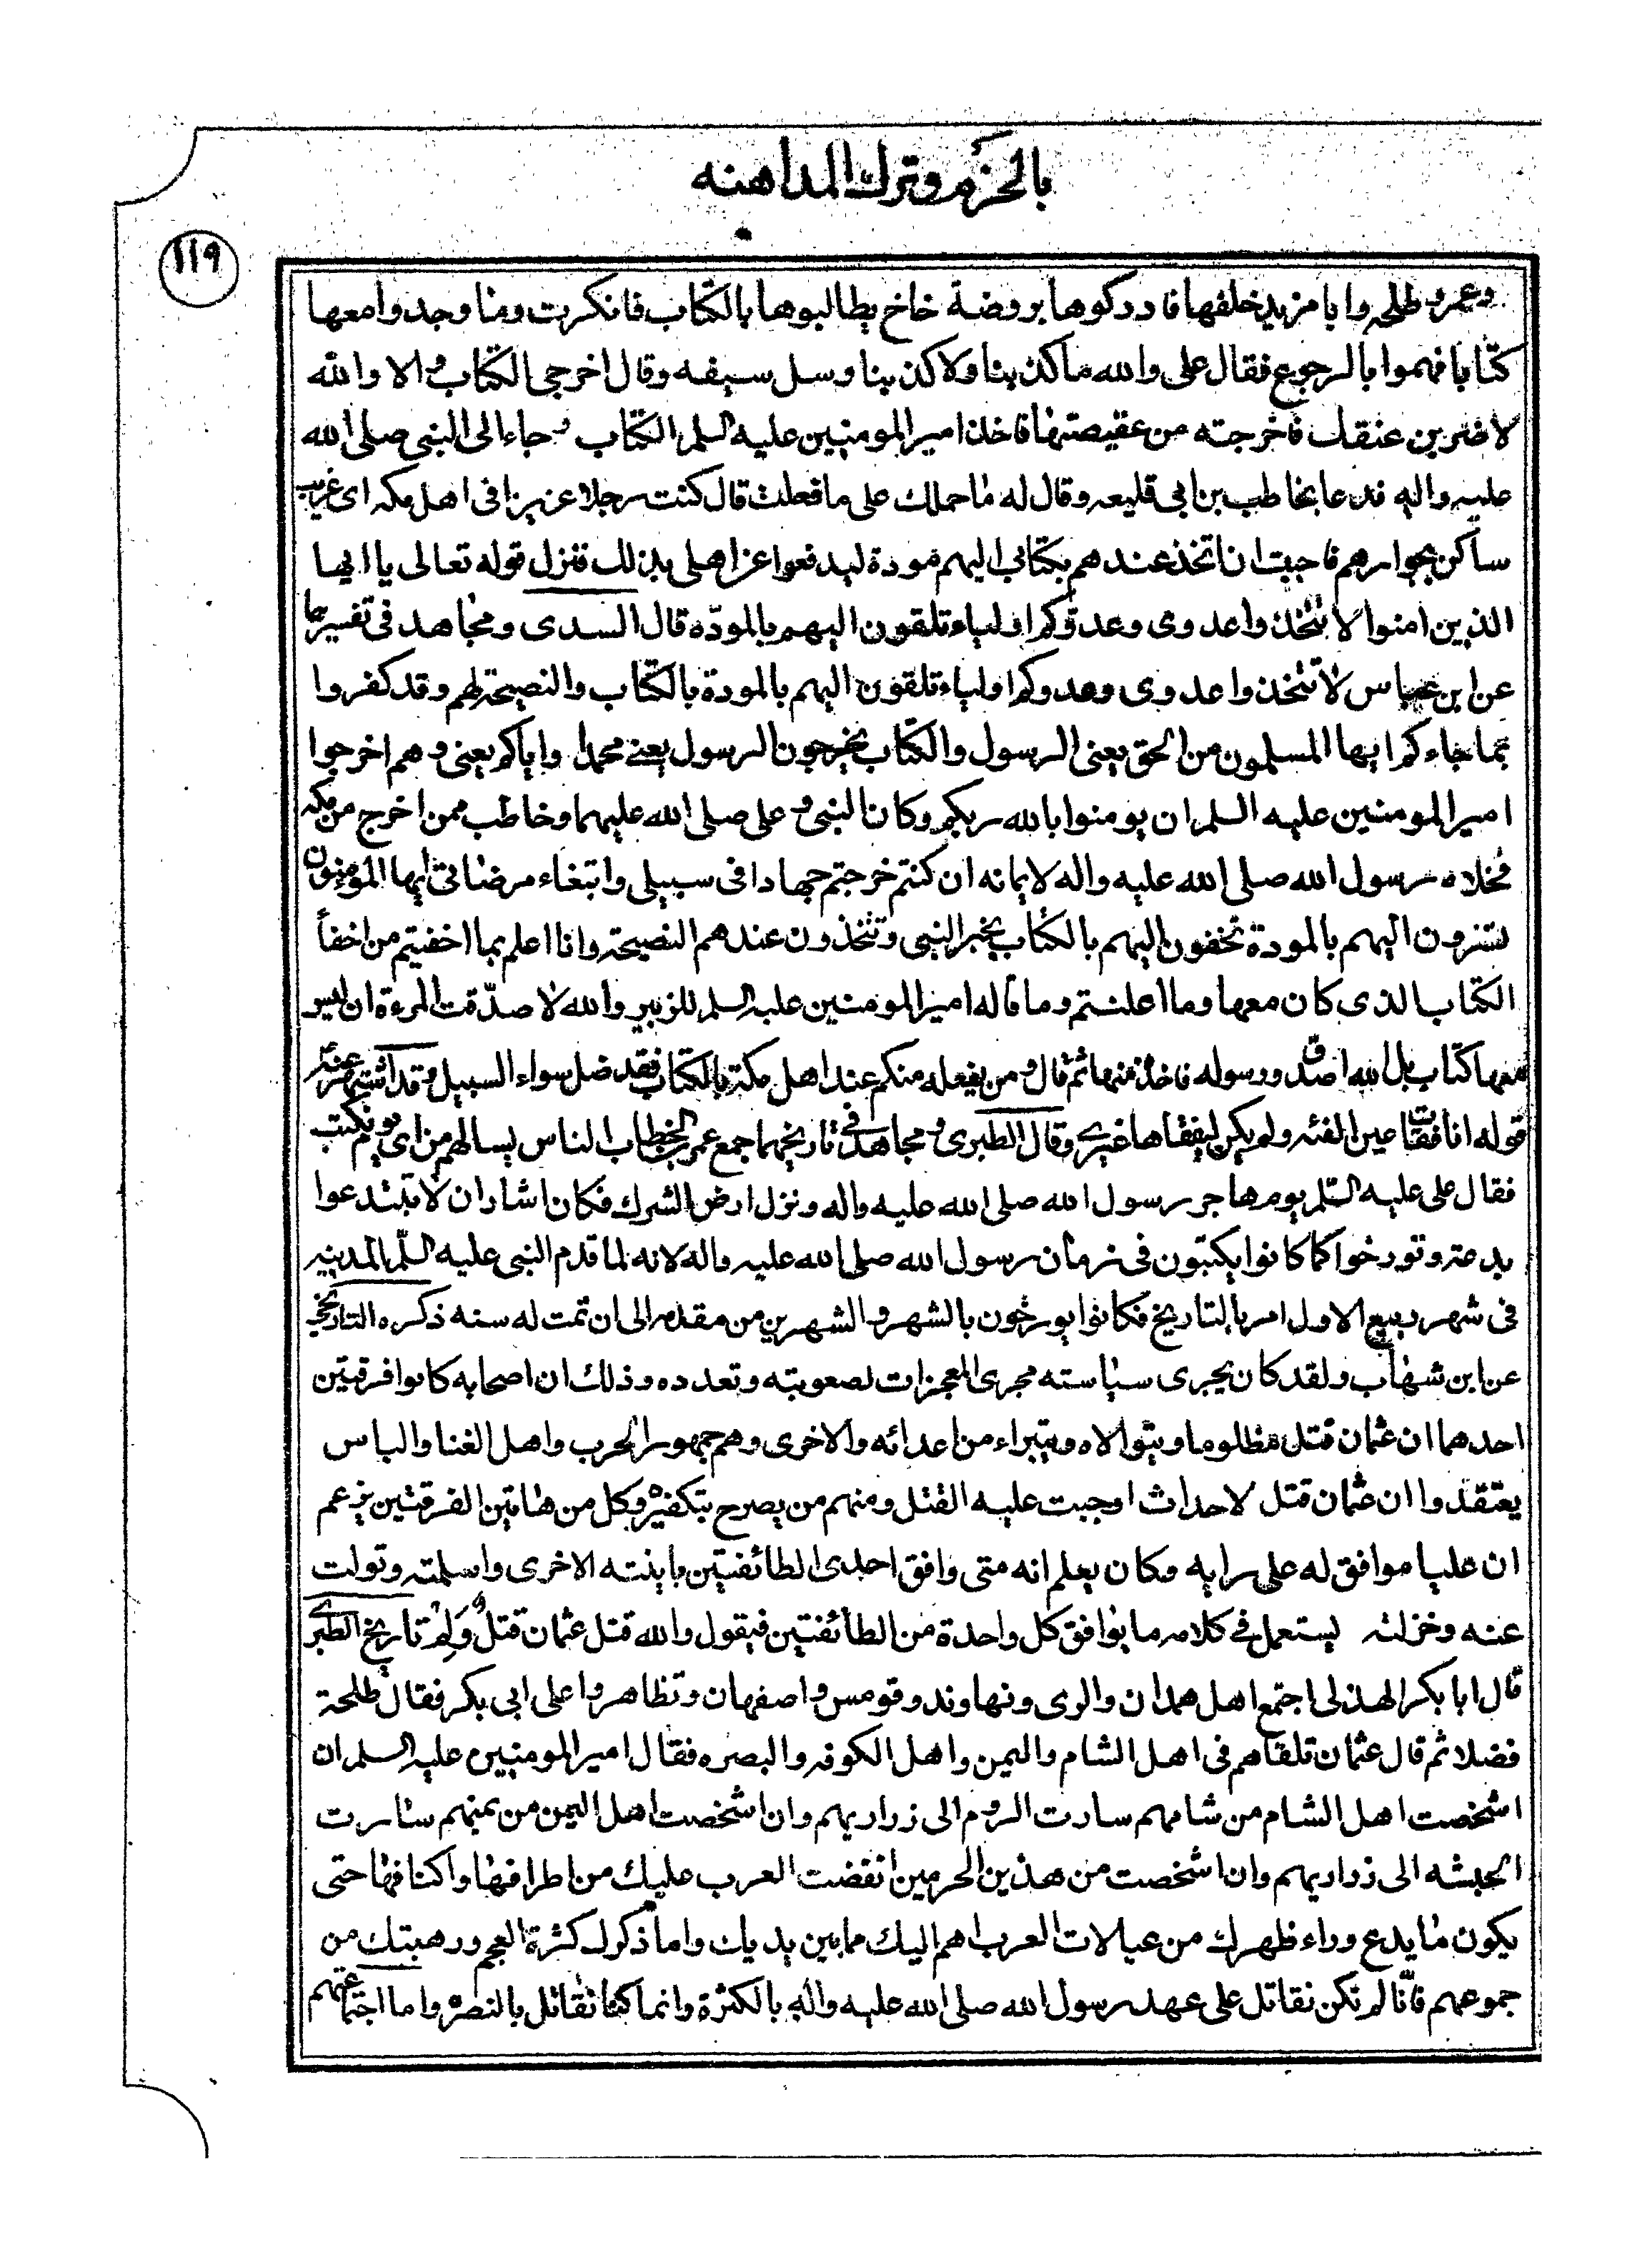 بالحزم وترك المداهنه
١١٩
وعمرو طلحه وابا مزيد خلفها فادركوها بروضة خاخ يطالبوها بالكتاب فانكرت وما وجدوا معها
كتابا فهموا بالرجوع فقال على والله ما كذبنا ولا كذبنا وسل سيفه وقال اخرجى الكتاب والا والله
لاضربن عنقك فاخرجته من عقيصتها فاخذ امير المومنين عليه السلم الكتاب وجاء الى النبى صلى الله
عليه واله فدعا بخاطب بن ابى قليعه وقال له ما حملك على ما فعلت قال كنت رجلا عزيزا فى اهل مكه اى غريب
ساكن بجوارهم فاحببت ان اتخذ عندهم بكتابى اليهم مودة ليدفعوا عن اهلى بذلك فنزل قوله تعالى يا ايها
الذين امنوا لا تتخذوا عدوى وعدوكم اولياء تلقون اليهم بالمودّه قال السدى ومجاهد فى تفسيرهما
عن ابن عباس لا تتخذوا عدوى وعدوكم اولياء تلقون اليهم بالمودة بالكتاب والنصيحة لهم وقد كفروا
بما جاءكم ايها المسلمون من الحق يعنى الرسول والكتاب يخرجون الرسول يعنى محمدا واياكم يعنى وهم اخرجوا
امير المومنين عليه السلم ان يومنوا بالله ربكم وكان النبى وعلى صلى الله عليهما وخاطب ممن اخرج من مكه
فخلاه رسول الله صلى الله عليه واله لايمانه ان كنتم خرجتم جهادا فى سبيلى وابتغاء مرضاتى ايها المؤمنون
تسرون اليهم بالمودة تخفون اليهم بالكتاب بخبر النبى وتتخذون عندهم النصيحة وانا اعلم بما اخفيتم من اخفأ
الكتاب الذى كان معها وما اعلنتم وما قاله امير المومنين عليه السلم للزبير والله لا صدّقت المرءة ان ليس
معها كتاب بل الله اصدق ورسوله فاخذه منها ثم قال ومن يفعله منكم عند اهل مكة بالكتاب فقد ضل سواء السبيل وقد اشتهر عنه
قوله انا فقات عين الفئه ولم يكن ليفقاها غيرى وقال الطبرى ومجاهد فى تاريخهما جمع عمر بن الخطاب الناس يسالهم من اى يوم نكتب
فقال على عليه السلم يوم هاجر رسول الله صلى الله عليه واله ونزل ارض الشرك فكان اشار ان لا تبتدعوا
بدعة وتورخوا كما كانوا يكتبون فى زمان رسول الله صلى الله عليه واله لانه لما قدم النبى عليه السلم المدينه
فى شهر ربيع الاول امر بالتاريخ فكانوا يورخون بالشهر والشهرين من مقدمه الى ان تمت له سنه ذكره التاريخى
عن ابن شهاب ولقد كان يجرى سياسته مجرى المعجزات لصعوبته وتعدده وذلك ان اصحابه كانوا فرقتين
احدهما ان عثمان قتل مظلوما ويتوالاه ويتبراء من اعدائه والاخرى وهم جمهور الحرب واهل الغنا والباس
يعتقدوا ان عثمان قتل لاحداث اوجبت عليه القتل ومنهم من يصرح بتكفيره وكل من هاتين الفرقتين يزعم
ان عليا موافق له على رايه وكان يعلم انه متى وافق احدى الطائفتين باينته الاخرى واسلمته وتولت
عنه وخزلته يستعمل فى كلامه ما يوافق كل واحدة من الطائفتين فيقول والله قتل عثمان قتل تاريخ الطبرى
قال ابا بكر الهذلى اجتمع اهل همدان والرى ونهاوند وقومس واصفهان وتظاهروا على ابى بكر فقال طلحة
فضلا ثم قال عثمان تلقاهم فى اهل الشام واليمن واهل الكوفه والبصره فقال امير المومنين عليه السلم ان
اشخصت اهل الشام من شامهم سارت الروم الى زراريهم وان اشخصت اهل اليمن من يمنهم سارت
الحبشه الى زراريهم وان اشخصت من هذين الحرمين انقضت العرب عليك من اطرافها واكنافها حتى
يكون ما يدع وراء ظهرك من عيالات العرب اهم اليك مما بين يديك واما ذكرك كثرة العجم ورهبتك من
جموعهم فانّا لم نكن نقاتل على عهد رسول الله صلى الله عليه واله بالكثرة وانما كنا نقاتل بالنصره واما اجتماعهم